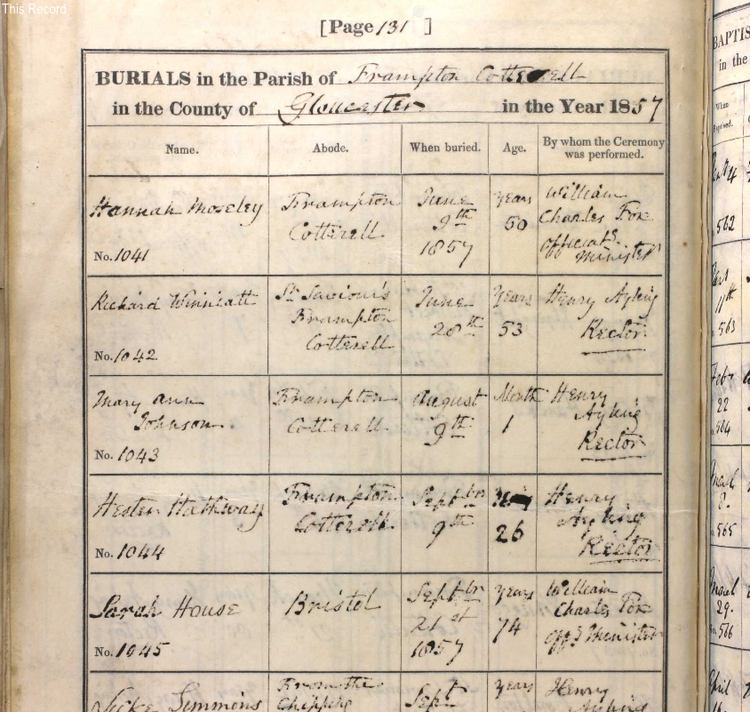 This Record
[Page 131 ]
BURIALS in the Parish of Frampton Cotterell
in the County of Gloucester in the Year 1857
Name. Abode. When buried. Age. By whom the Ceremony was performed.
Hannah Moseley
No. 1041
Frampton
Cotterell
June
9th
1857
Years
50
William
Charles Fox
Minister
Richard Winniatt
No. 1042
St Saviour's
Frampton
Cotterell
June
28th
Years
53
Henry Ayling
Rector
Mary Ann
Johnson
No. 1043
Frampton
Cotterell
August
9th
Month
1
Henry
Ayling
Rector
Hester Hathway
No. 1044
Frampton
Cotterell
Septbr
9th
26
Henry
Ayling
Rector
Sarah House
No. 1045
Bristol
Septbr
21st
1857
Years
74
William
Charles Fox
Offg Minister
Simmons
From the
Chipping
Sept
Years
Henry
Ayling
BAPTIS
in the
When
562
11th
563
Feby
22
564
8.
565
29.
566
April